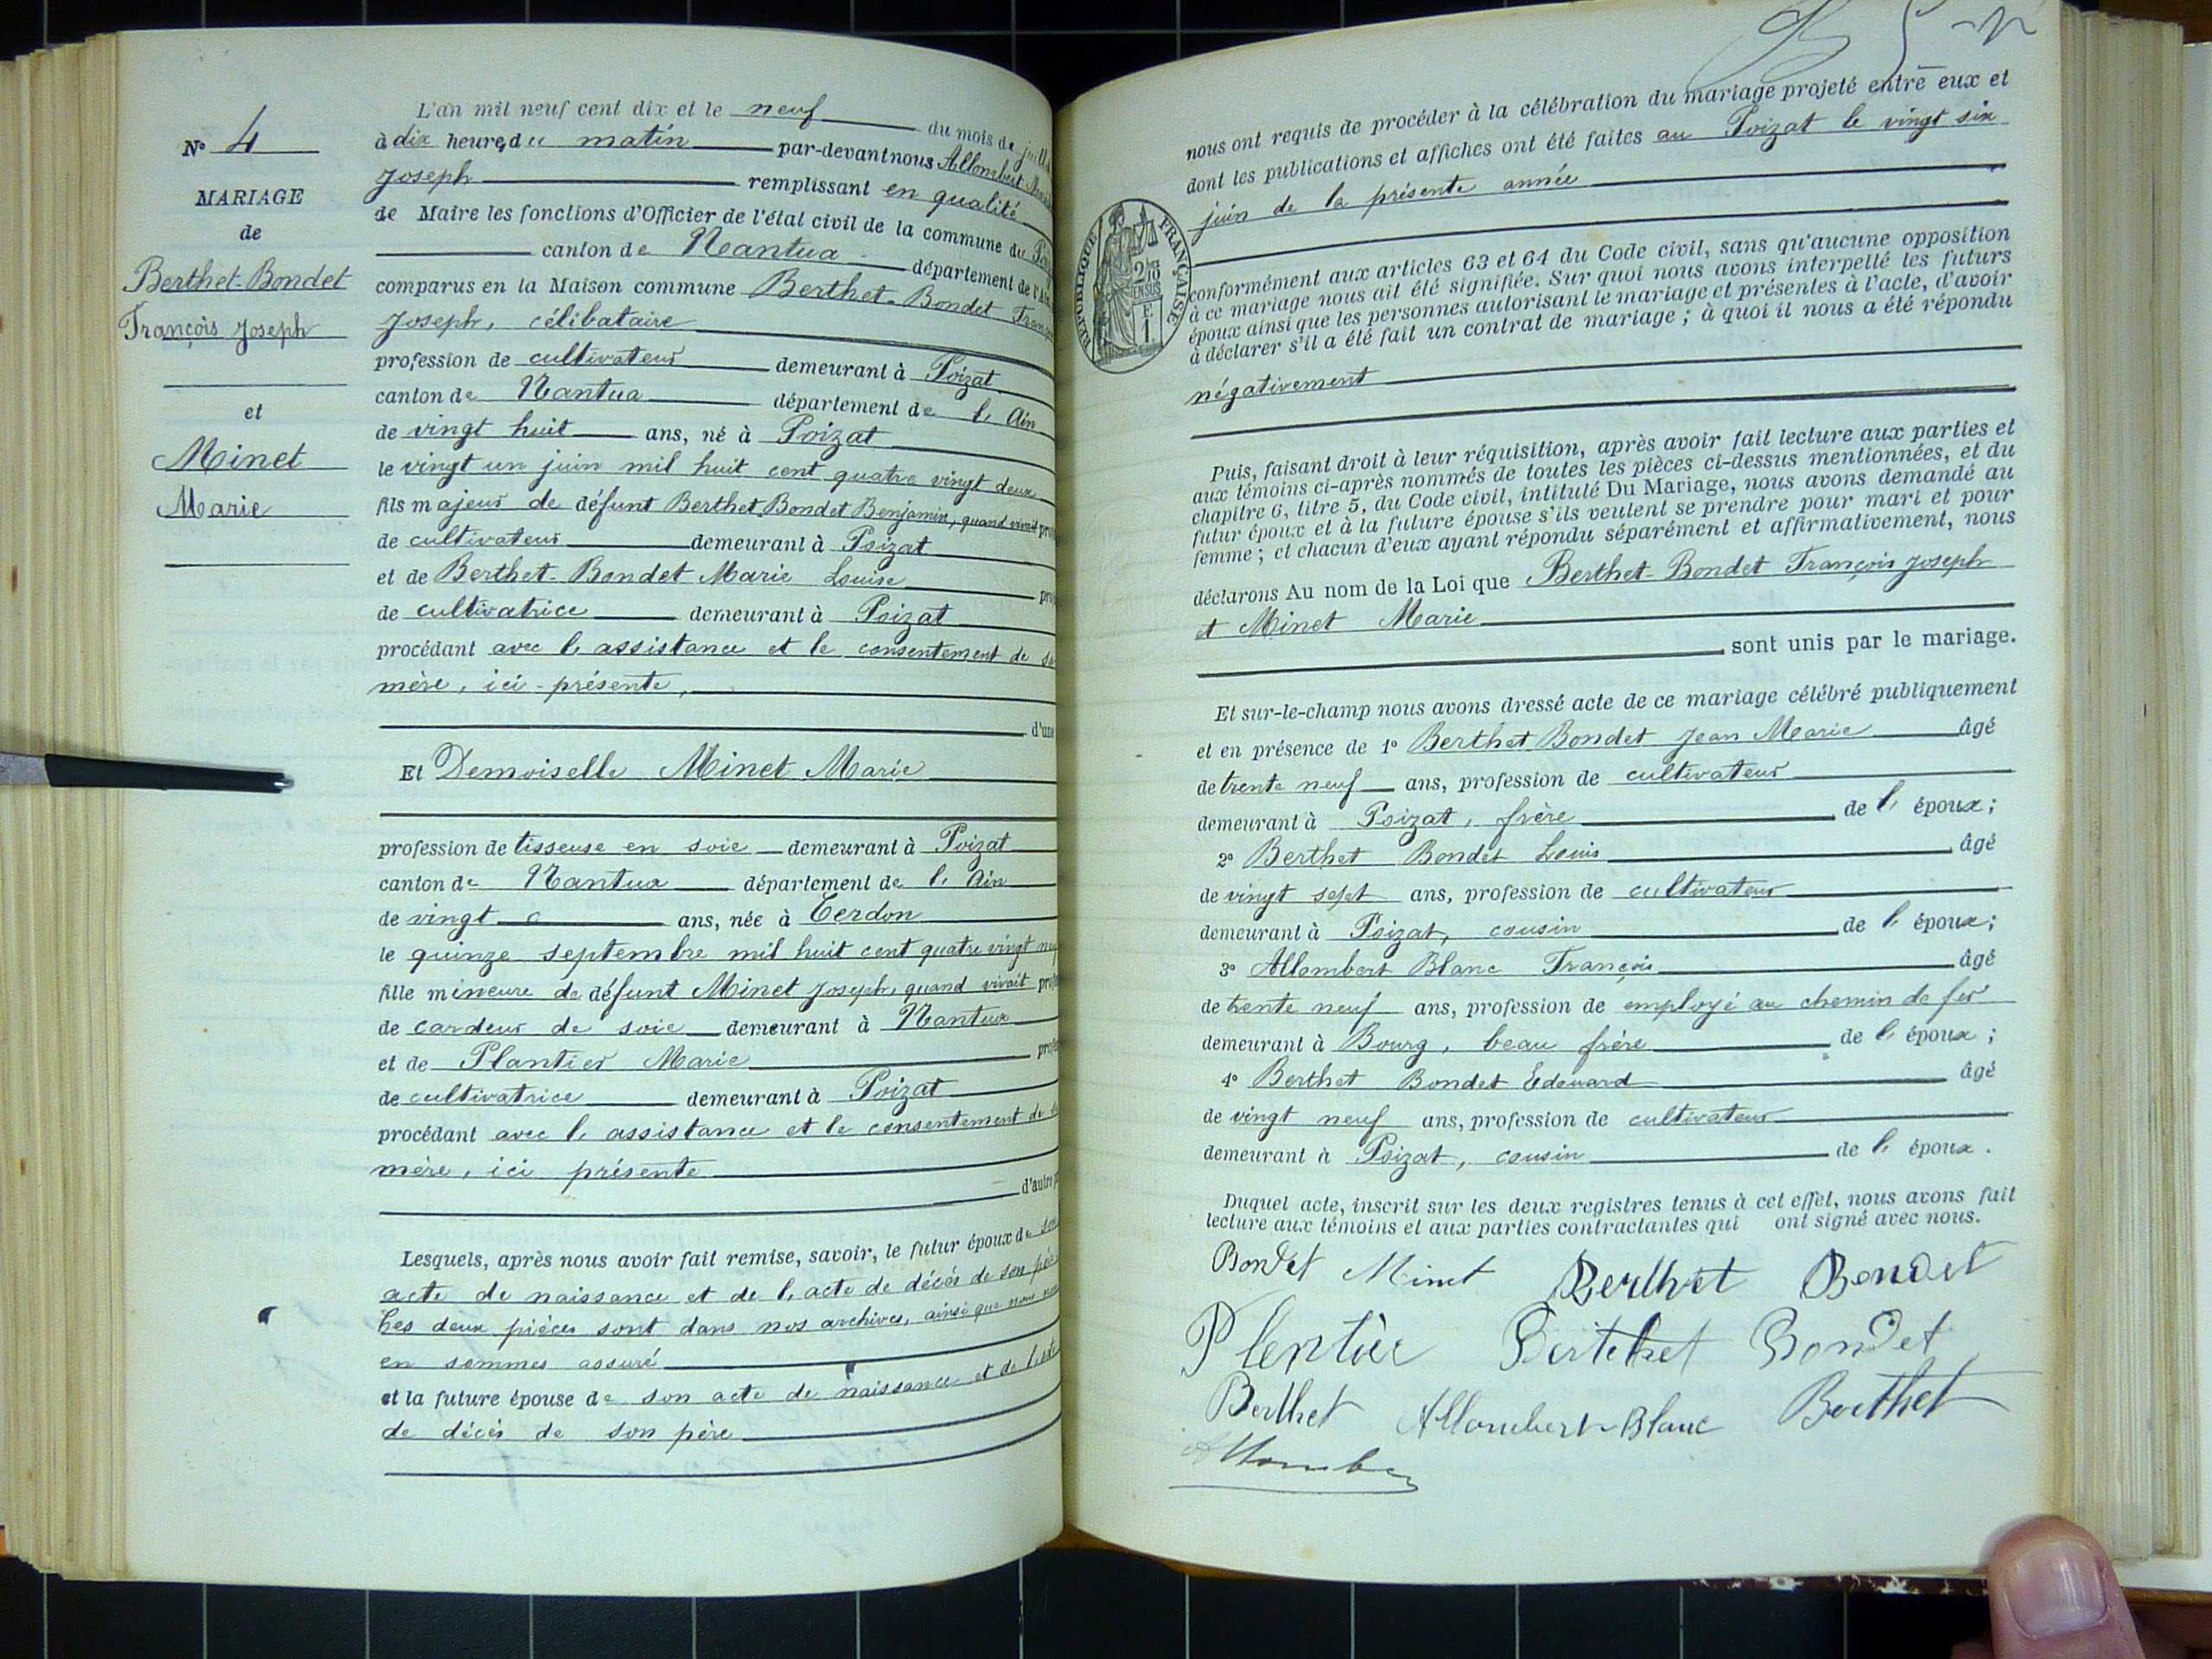 N° 4
MARIAGE
de
Berthet-Bondet
François Joseph
et
Minet
Marie
L'an mil neuf cent dix et le neuf du mois de juillet
à dix heures du matin par-devant nous Allombert
Joseph remplissant en qualité
de Maire les fonctions d'Officier de l'état civil de la commune du
canton de Nantua département de l'Ain
comparus en la Maison commune Berthet-Bondet François
Joseph, célibataire
profession de cultivateur demeurant à Poizat
canton de Nantua département de l'Ain
de vingt huit ans, né à Poizat
le vingt un juin mil huit cent quatre vingt deux
fils majeur de défunt Berthet-Bondet Benjamin, quand vivait prof
de cultivateur demeurant à Poizat
et de Berthet-Bondet Marie Louise prof
de cultivatrice demeurant à Poizat
procédant avec l'assistance et le consentement de sa
mère, ici-présente,
d'une
Et Demoiselle Minet Marie
profession de tisseuse en soie demeurant à Poizat
canton de Nantua département de l'Ain
de vingt ans, née à Cerdon
le quinze septembre mil huit cent quatre vingt neuf
fille mineure de défunt Minet Joseph, quand vivait prof
de cardeur de soie demeurant à Nantua
et de Plantier Marie prof
de cultivatrice demeurant à Poizat
procédant avec l'assistance et le consentement de sa
mère, ici présente
d'autre p
Lesquels, après nous avoir fait remise, savoir, le futur époux de son
acte de naissance et de l'acte de décès de son père
Ces deux pièces sont dans nos archives, ainsi que nous nous
en sommes assuré
et la future épouse de son acte de naissance et de l'acte
de décès de son père
nous ont requis de procéder à la célébration du mariage projeté entre eux et
dont les publications et affiches ont été faites au Poizat le vingt six
juin de la présente année
RÉPUBLIQUE FRANÇAISE
conformément aux articles 63 et 64 du Code civil, sans qu'aucune opposition
à ce mariage nous ait été signifiée. Sur quoi nous avons interpellé les futurs
époux ainsi que les personnes autorisant le mariage et présentes à l'acte, d'avoir
à déclarer s'il a été fait un contrat de mariage ; à quoi il nous a été répondu
négativement
Puis, faisant droit à leur réquisition, après avoir fait lecture aux parties et
aux témoins ci-après nommés de toutes les pièces ci-dessus mentionnées, et du
chapitre 6, titre 5, du Code civil, intitulé Du Mariage, nous avons demandé au
futur époux et à la future épouse s'ils veulent se prendre pour mari et pour
femme ; et chacun d'eux ayant répondu séparément et affirmativement, nous
déclarons Au nom de la Loi que Berthet-Bondet François Joseph
et Minet Marie
sont unis par le mariage.
Et sur-le-champ nous avons dressé acte de ce mariage célébré publiquement
et en présence de 1° Berthet Bondet Jean Marie âgé
de trente neuf ans, profession de cultivateur
demeurant à Poizat, frère de l'époux ;
2° Berthet Bondet Louis âgé
de vingt sept ans, profession de cultivateur
demeurant à Poizat, cousin de l'époux ;
3° Allombert Blanc François âgé
de trente neuf ans, profession de employé au chemin de fer
demeurant à Bourg, beau frère de l'époux ;
4° Berthet Bondet Edouard âgé
de vingt neuf ans, profession de cultivateur
demeurant à Poizat, cousin de l'époux.
Duquel acte, inscrit sur les deux registres tenus à cet effet, nous avons fait
lecture aux témoins et aux parties contractantes qui ont signé avec nous.
Bondet Minet Berthet Bondet
Plentier Bertehet Bondet
Berthet Allombert-Blanc Berthet